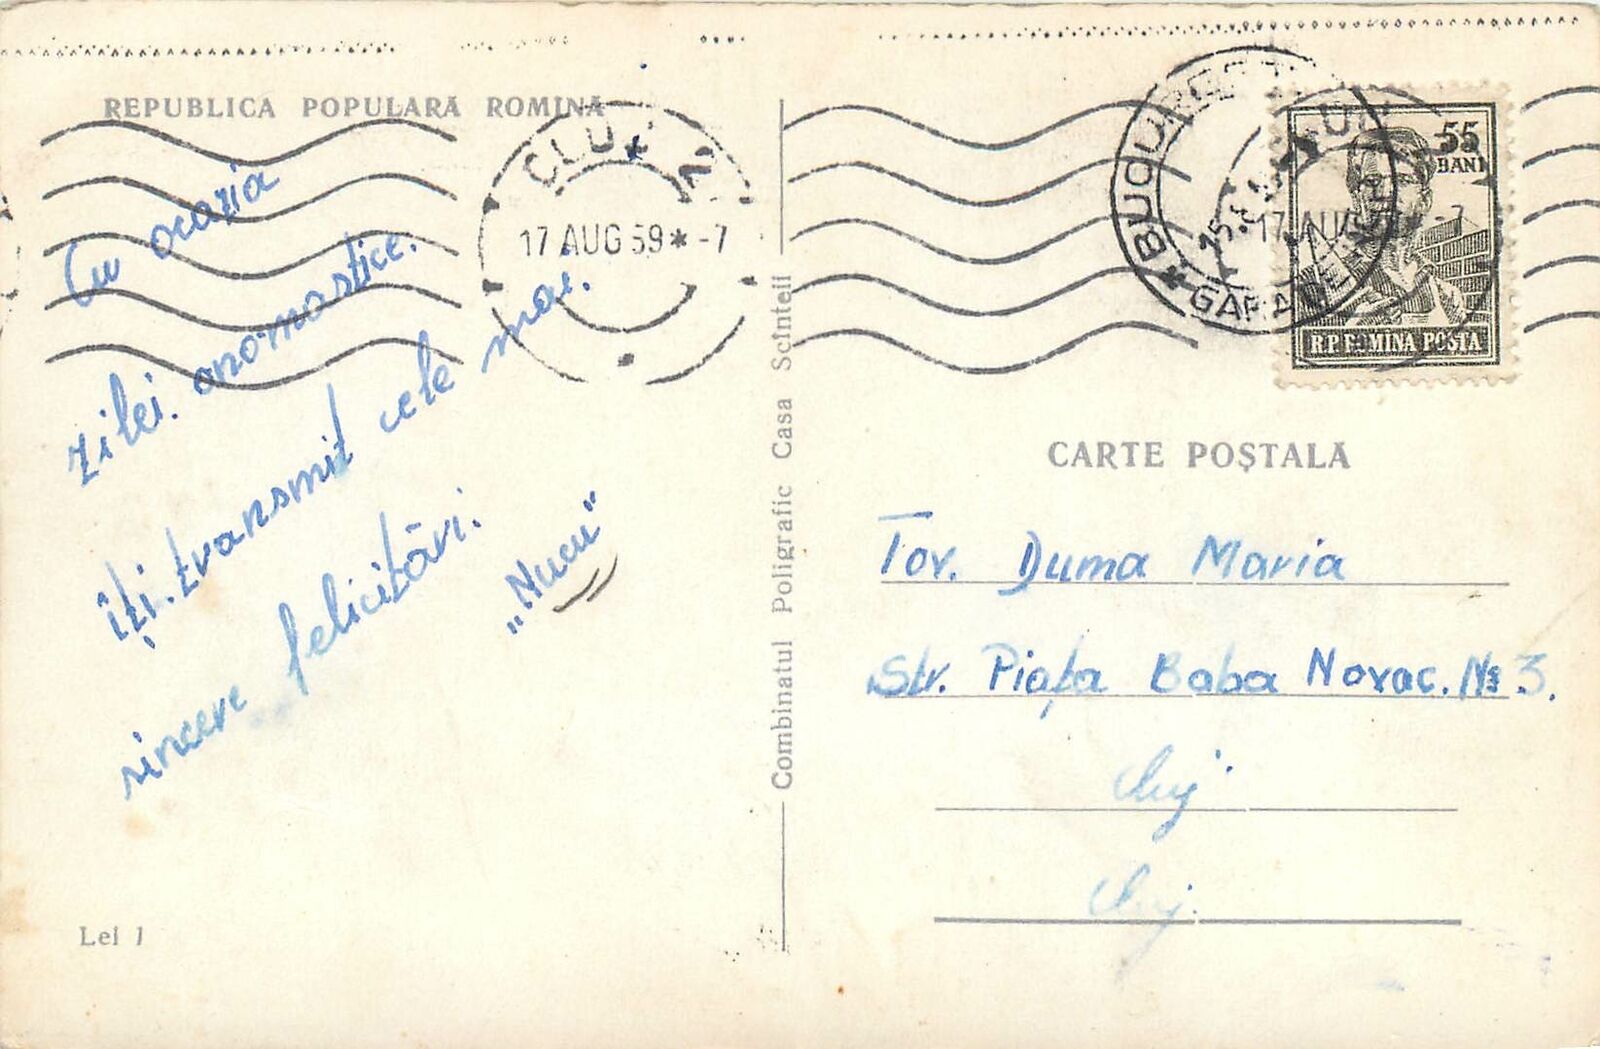 REPUBLICA POPULARĂ ROMINĂ
CLUJ 2
17 AUG 59 * -7
Cu ocazia
zilei onomastice.
îți transmit cele mai
sincere felicitări.
„Nucu”
Lei 1
Combinatul Poligrafic Casa Scînteii
BUCUREȘTI
GARA DE
17 AUG * -7
55
BANI
R.P. ROMINA POSTA
CARTE POȘTALĂ
Tov. Duma Maria
Str. Piața Baba Novac. No 3.
Cluj
Cluj.